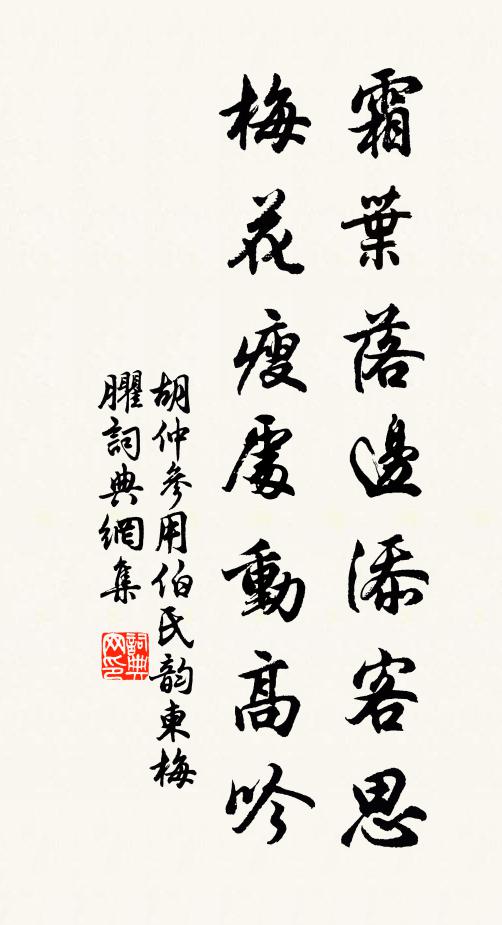 霜葉落邊添客思
梅花瘦處動高吟
胡仲參用伯氏韵東梅
臞詞典網集
詞典网印